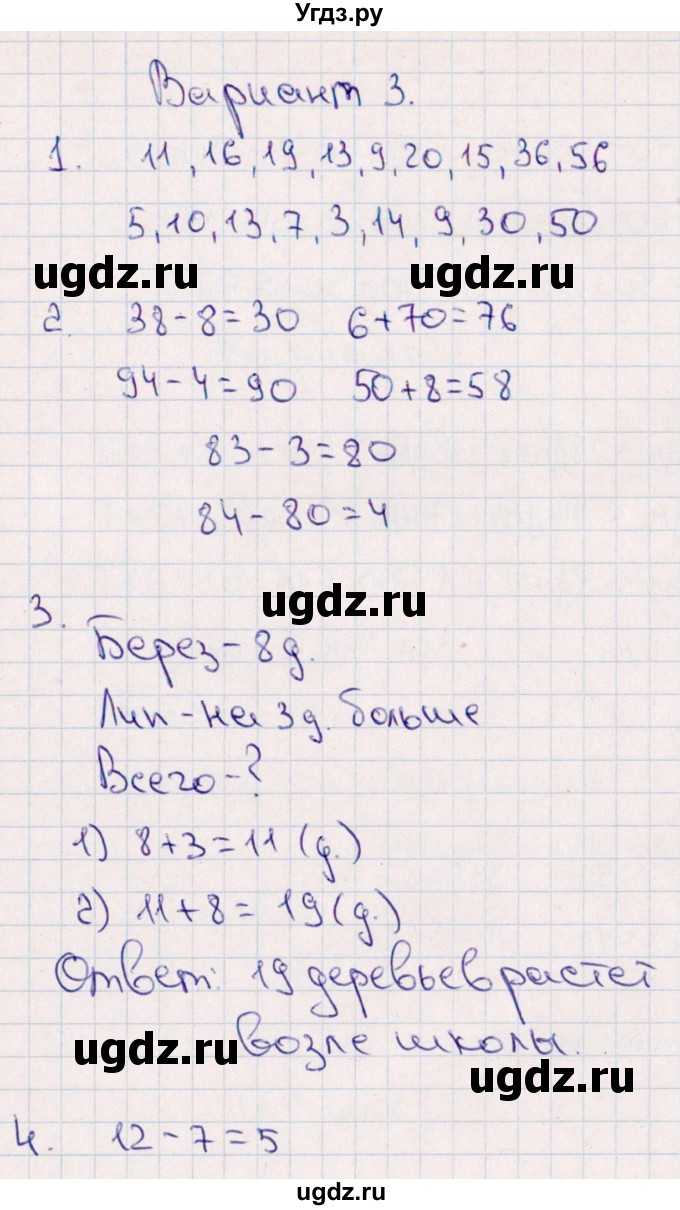 Угдз.ру
Вариант 3.
1. 11, 16, 19, 13, 9, 20, 15, 36, 56
5, 10, 13, 7, 3, 14, 9, 30, 50
ugdz.ru ugdz.ru
2. 38-8=30 6+70=76
94-4=90 50+8=58
83-3=80
84-80=4
ugdz.ru
3.
Берез-8д.
Лип-на 3д. больше
Всего-?
1) 8+3=11 (д.)
2) 11+8=19 (д.)
Ответ: 19 деревьев растет
возле школы.
ugdz.ru
ugdz.ru
4. 12-7=5
ugdz.ru